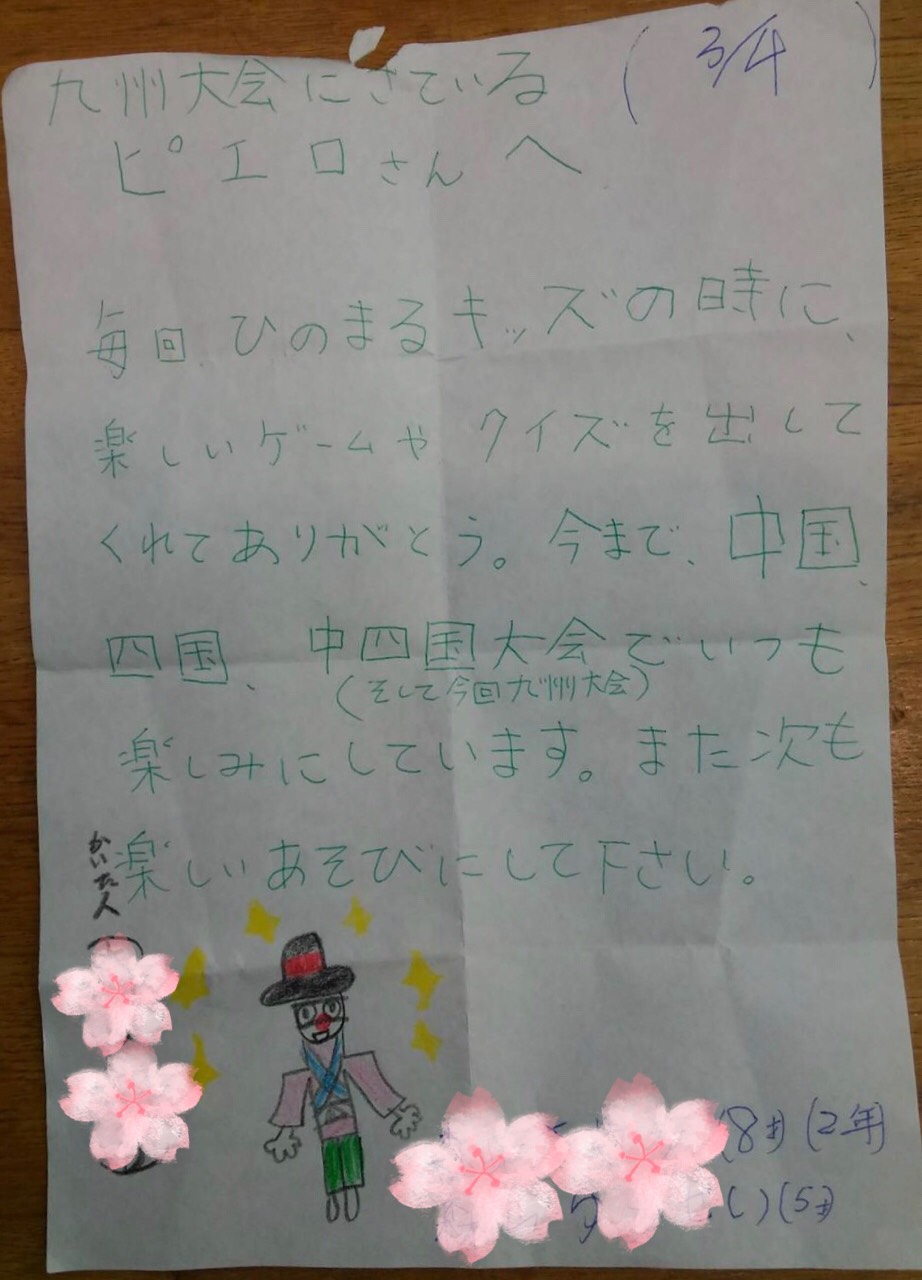 (3/4)
九州大会にきている
ピエロさんへ
毎回、ひのまるキッズの時に、
楽しいゲームや クイズを出して
くれてありがとう。今まで、中国、
四国、中四国大会でいつも
(そして今回九州大会)
楽しみにしています。また次も
楽しいあそびにして下さい。
かいた人
(8才)(2年)
(5才)